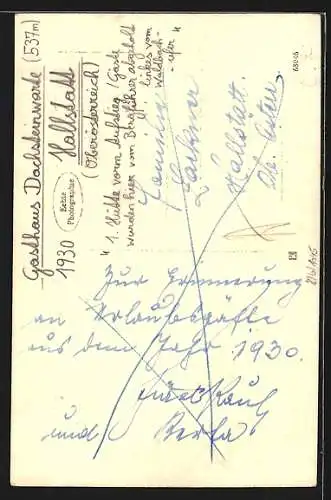 Gasthaus Dachsteinwarte (537m)
Hallstatt
(Oberösterreich)
1930
Echte
Photographie
"1. Hütte vorm Aufstieg! Gäste
wurden hier vom Bergführer abgeholt
links vom
Waldbach-
ufer"
Familie
Hallstatt
Zur Erinnerung
an Urlaubsgäste
aus dem Jahr 1930.
und Berta